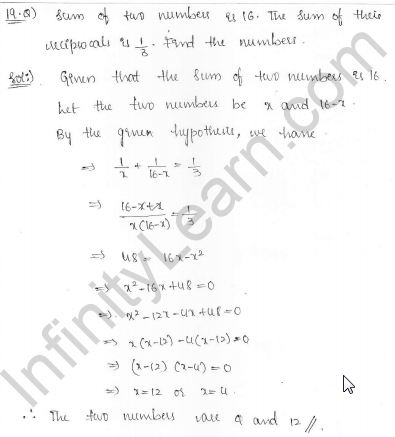 19.Q) Sum of two numbers is 16. The sum of their
reciprocals is 1/3. Find the numbers.
Sol:) Given that the sum of two numbers is 16.
Let the two numbers be x and 16-x.
By the given hypothesis, we have
⇒ 1/x + 1/(16-x) = 1/3
⇒ (16-x+x)/(x(16-x)) = 1/3
⇒ 48 = 16x-x²
⇒ x²-16x+48=0
⇒ x²-12x-4x+48=0
⇒ x(x-12)-4(x-12)=0
⇒ (x-12)(x-4)=0
⇒ x=12 or x=4.
∴ The two numbers are 4 and 12 //.
InfinityLearn.com